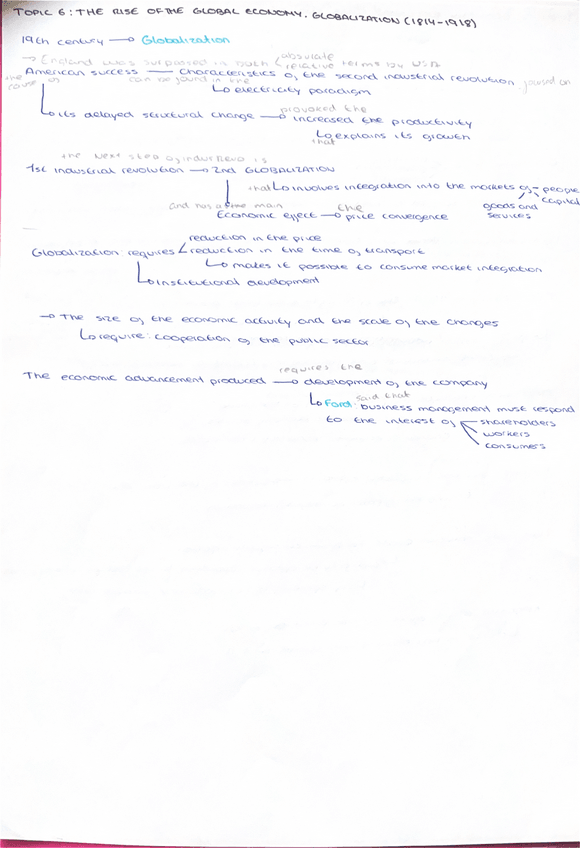 TOPIC 6: THE RISE OF THE GLOBAL ECONOMY. GLOBALIZATION (1814-1918)
19th century → Globalization
→ England was surpassed in both absolute
relative terms by USA
the cause of American success — can be found in the Characteristics of the second industrial revolution, focused on
↳ electricity paradigm
↳ its delayed structural change → provoked the increased the productivity
↳ that explains its growth
the next step of indus Revo is
1st industrial revolution → 2nd GLOBALIZATION
that ↳ involves integration into the markets of people
capital
goods and services
and has a the main Economic effect → the price convergence
Globalization requires reduction in the price
reduction in the time of transport
↳ makes it possible to consume market integration
↳ Institutional development
→ The size of the economic activity and the scale of the changes
↳ require: cooperation of the public sector
The economic advancement produced → requires the development of the company
↳ Ford: said that business management must respond
to the interest of shareholders
workers
consumers